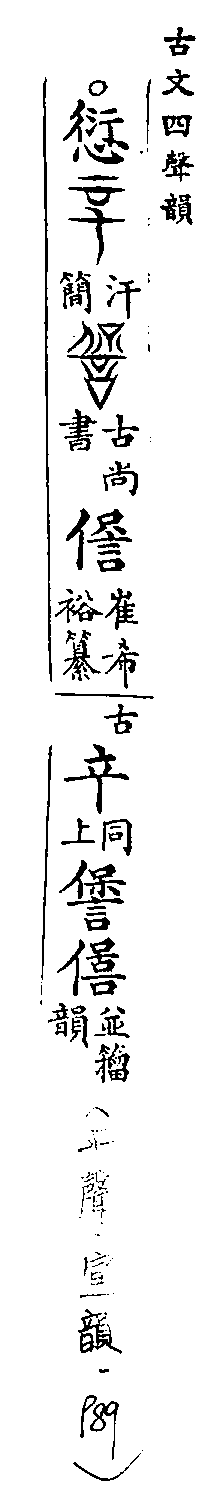 古文四聲韻
愆
汗簡
古尚書
崔希裕纂古
同上
並籀韻
(平聲·宣韻·P89)